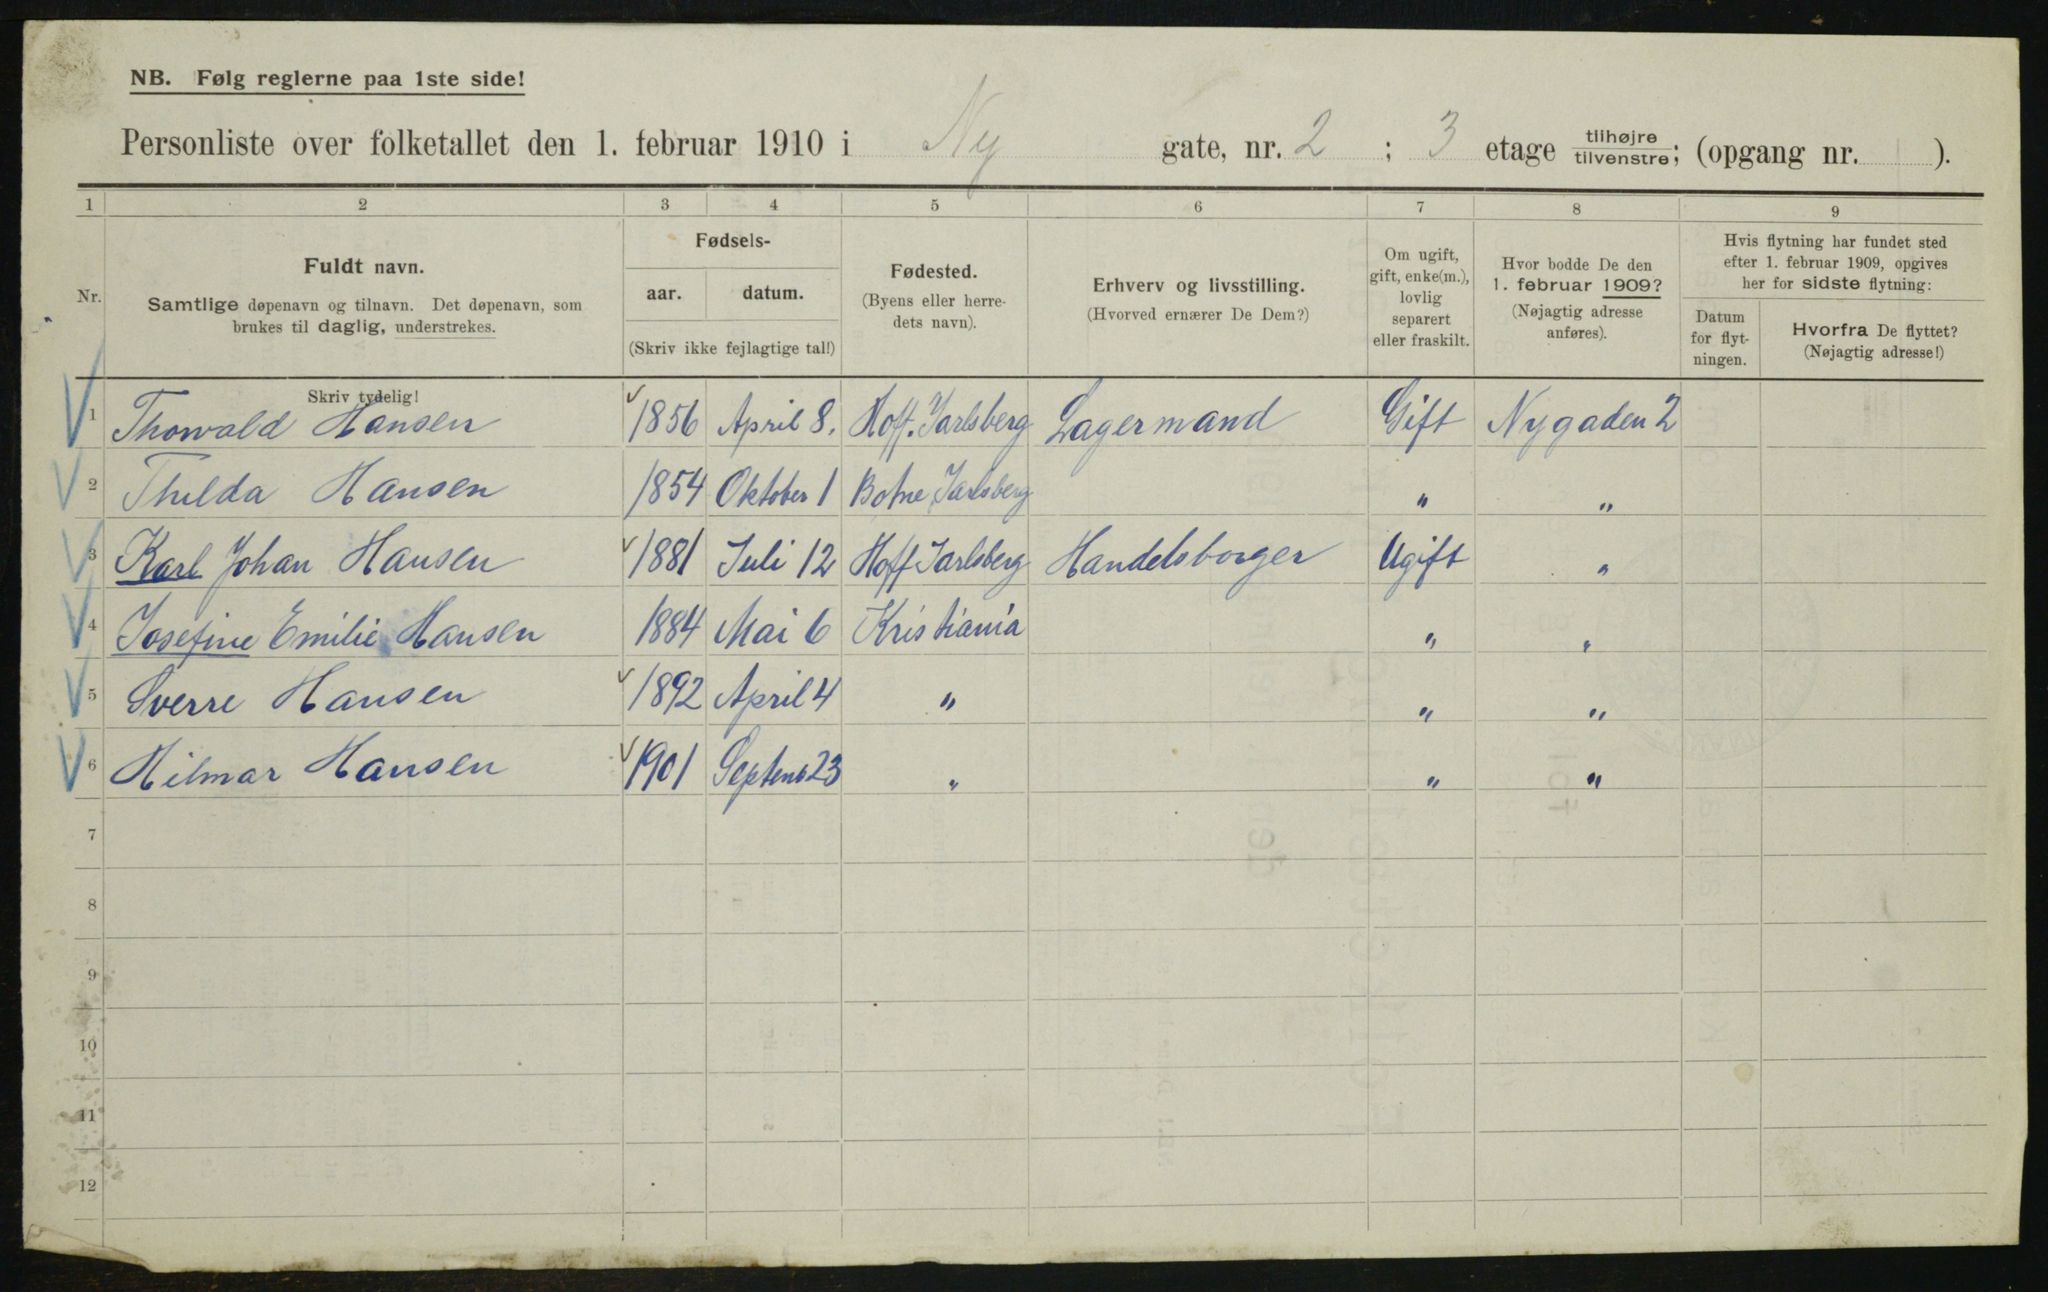 NB. Følg reglerne paa 1ste side!
Personliste over folketallet den 1. februar 1910 i Ny gate, nr. 2 ; 3 etage tilhøjre/tilvenstre; (opgang nr. ).
1 2 3 4 5 6 7 8 9
Nr.
Fuldt navn.
Samtlige døpenavn og tilnavn. Det døpenavn, som
brukes til daglig, understrekes.
Fødsels-
aar. datum.
(Skriv ikke fejlagtige tal!)
Fødested.
(Byens eller herre-
dets navn).
Erhverv og livsstilling.
(Hvorved ernærer De Dem?)
Om ugift,
gift, enke(m.),
lovlig
separert
eller fraskilt.
Hvor bodde De den
1. februar 1909?
(Nøjagtig adresse
anføres).
Hvis flytning har fundet sted
efter 1. februar 1909, opgives
her for sidste flytning:
Datum
for flyt-
ningen.
Hvorfra De flyttet?
(Nøjagtig adresse!)
Skriv tydelig!
1 Thorvald Hansen 1856 April 8. Hoff. Jarlsberg Lagermand Gift Nygaden 2
2 Thilda Hansen 1854 Oktober 1 Botne Jarlsberg " "
3 Karl Johan Hansen 1881 Juli 12 Hoff Jarlsberg Handelsborger Ugift "
4 Josefine Emilie Hansen 1884 Mai 6 Kristiania " "
5 Sverre Hansen 1892 April 4 " " "
6 Hilmar Hansen 1901 Septemb 23 " " "
7
8
9
10
11
12